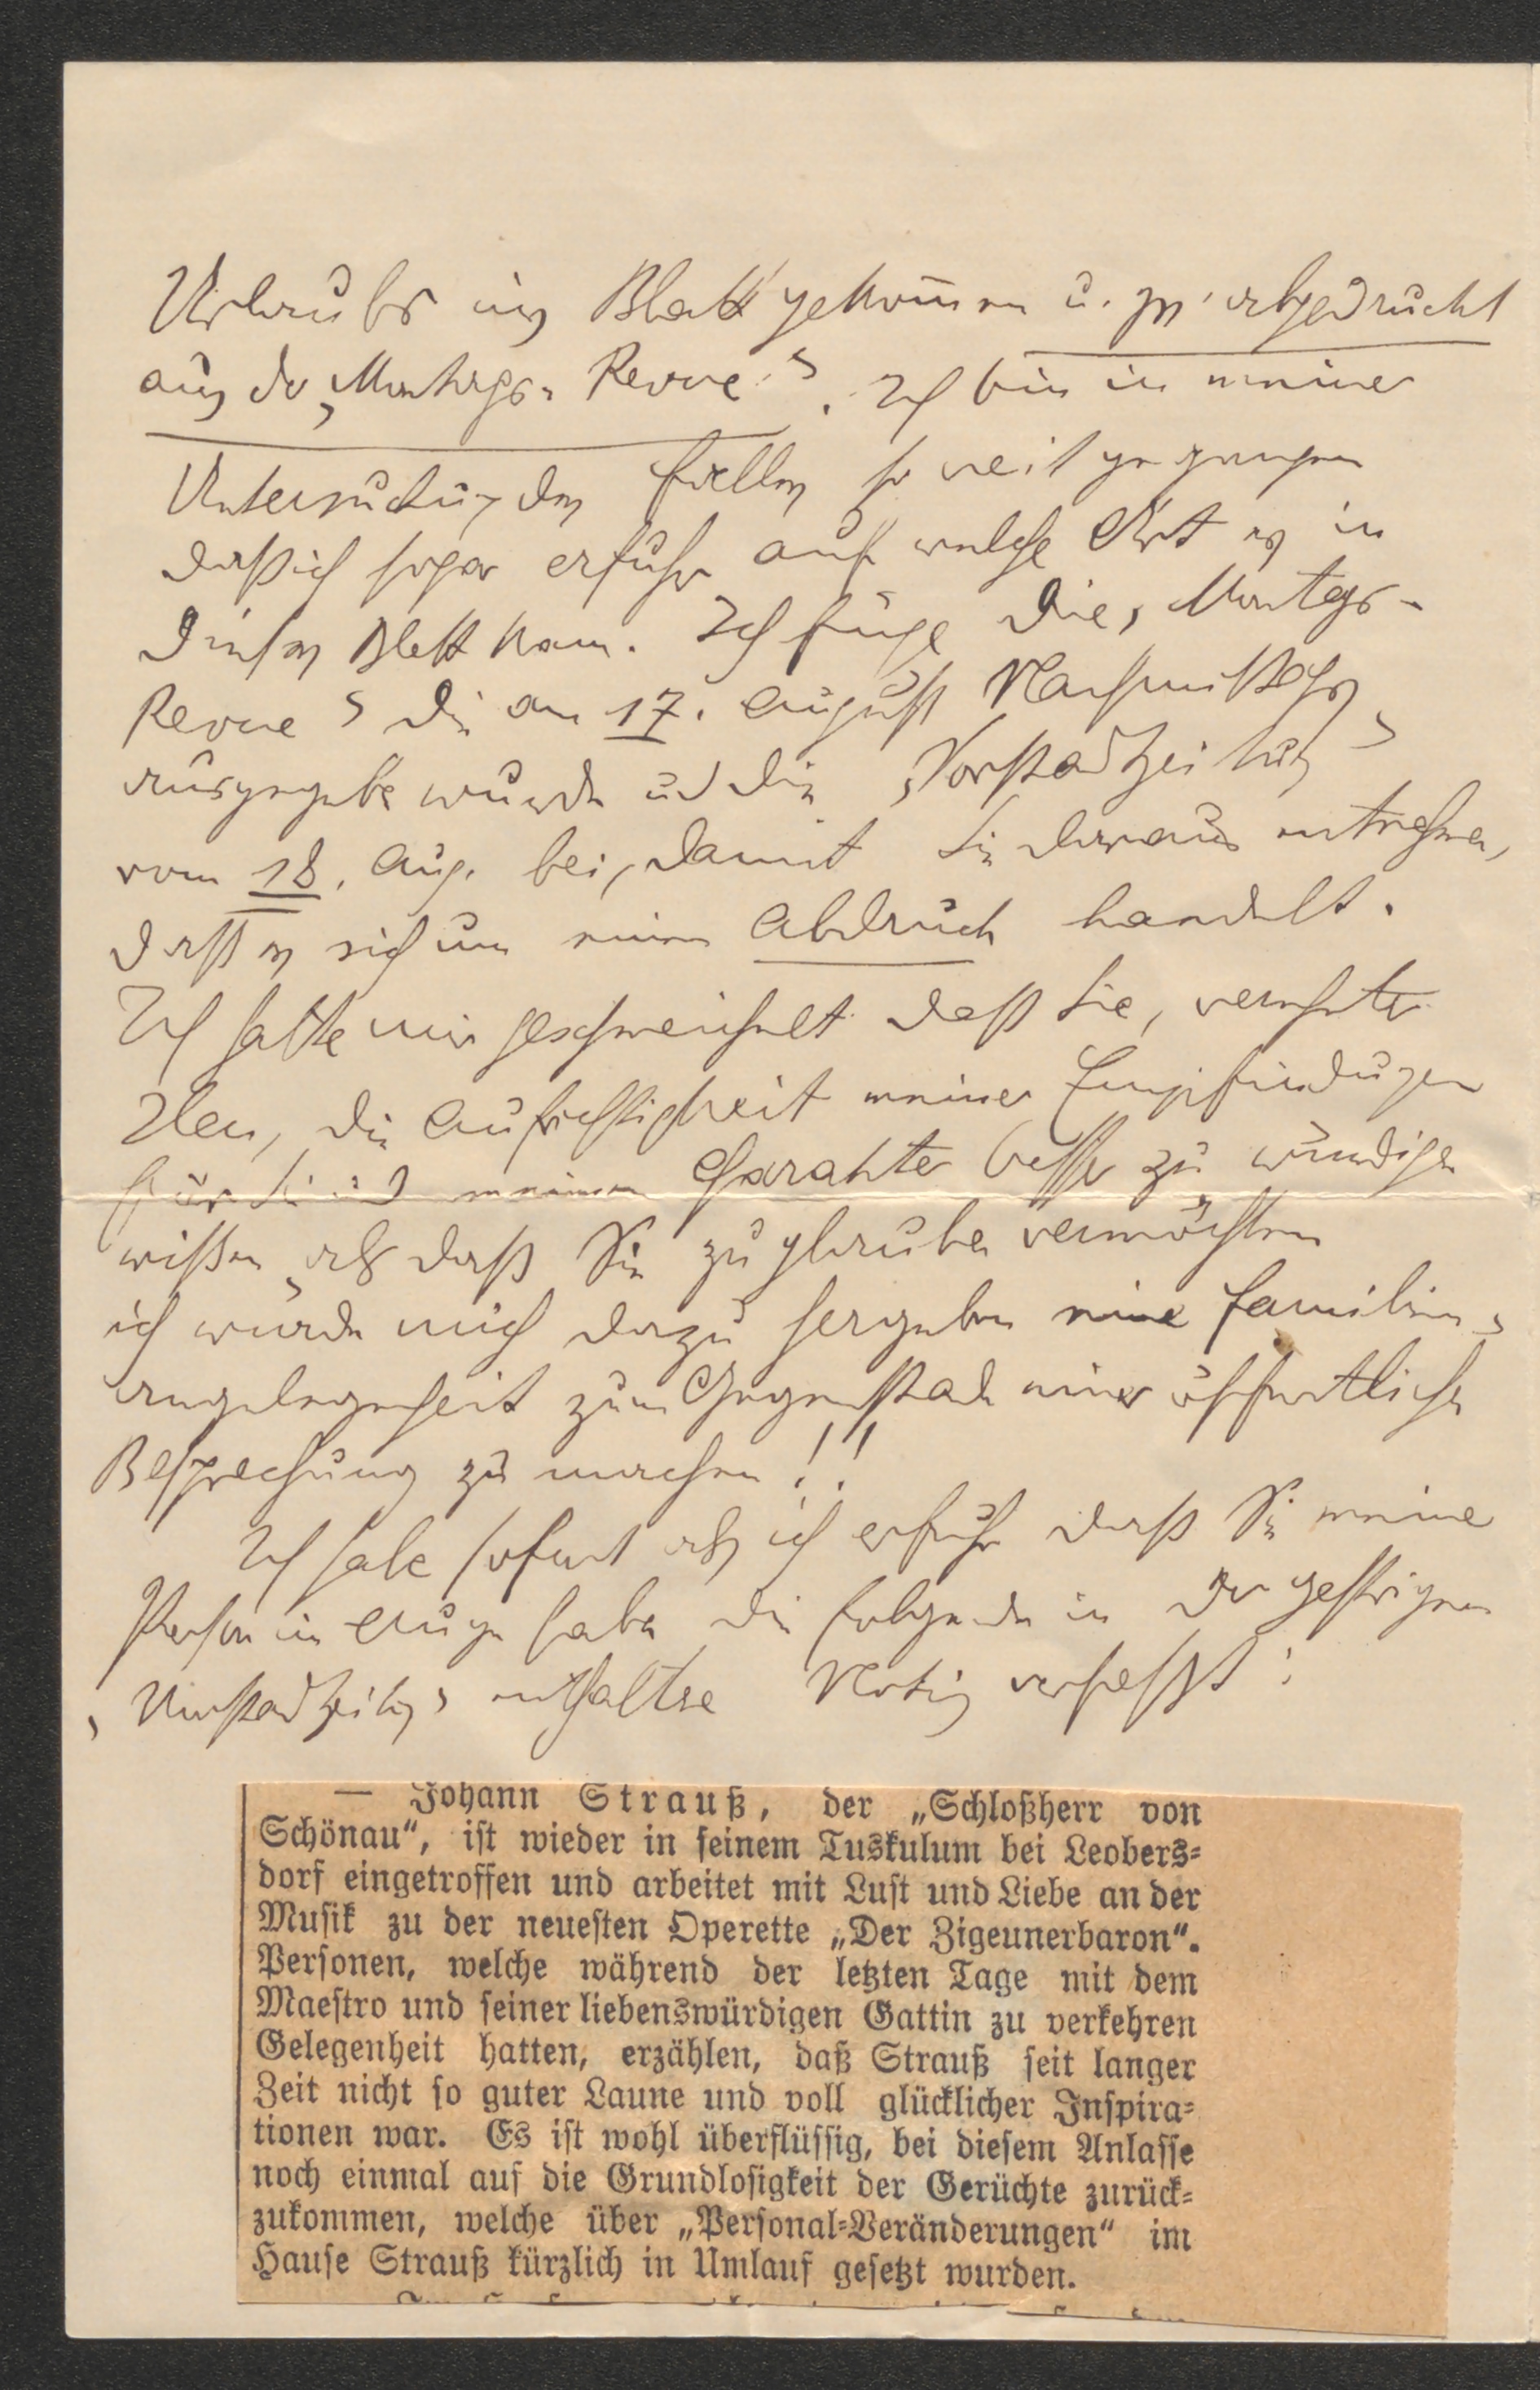 Urlaubs ins Blatt gekom̅en u. zw. abgedruckt
aus der „Montags-Revue“. Ich bin in meiner
Untersuchung des Falles so weit gegangen
daß ich sogar erfuhr auf welche Art es in
dieses Blatt kam. Ich füge die „Montags-
Revue“ die am 17. August Nachmittags
ausgegeben wurde und die „Vorstadtzeitung“
vom 18. Aug. bei, damit Sie daraus entnehmen,
daß es sich um einen Abdruck handelt.
Ich hatte mir geschmeichelt daß Sie, verehrter
Herr, die Aufrichtigkeit meiner Empfindungen
für Sie und meinen Charakter besser zu würdigen
wißen, als daß Sie zu glauben vermöchten
ich würde mich dazu hergeben eine Familien-
angelegenheit zum Gegenstande einer öffentlichen
Besprechung zu machen!!
Ich habe sofort als ich erfuhr daß Sie meine
Person im Auge haben die folgende in der gestrigen
„Vorstadtzeitung“ enthaltene Notiz verfaßt:
— Johann Strauß, der „Schloßherr von
Schönau“, ist wieder in seinem Tuskulum bei Leobers-
dorf eingetroffen und arbeitet mit Lust und Liebe an der
Musik zu der neuesten Operette „Der Zigeunerbaron“.
Personen, welche während der letzten Tage mit dem
Maestro und seiner liebenswürdigen Gattin zu verkehren
Gelegenheit hatten, erzählen, daß Strauß seit langer
Zeit nicht so guter Laune und voll glücklicher Inspira-
tionen war. Es ist wohl überflüssig, bei diesem Anlasse
noch einmal auf die Grundlosigkeit der Gerüchte zurück-
zukommen, welche über „Personal-Veränderungen“ im
Hause Strauß kürzlich in Umlauf gesetzt wurden.